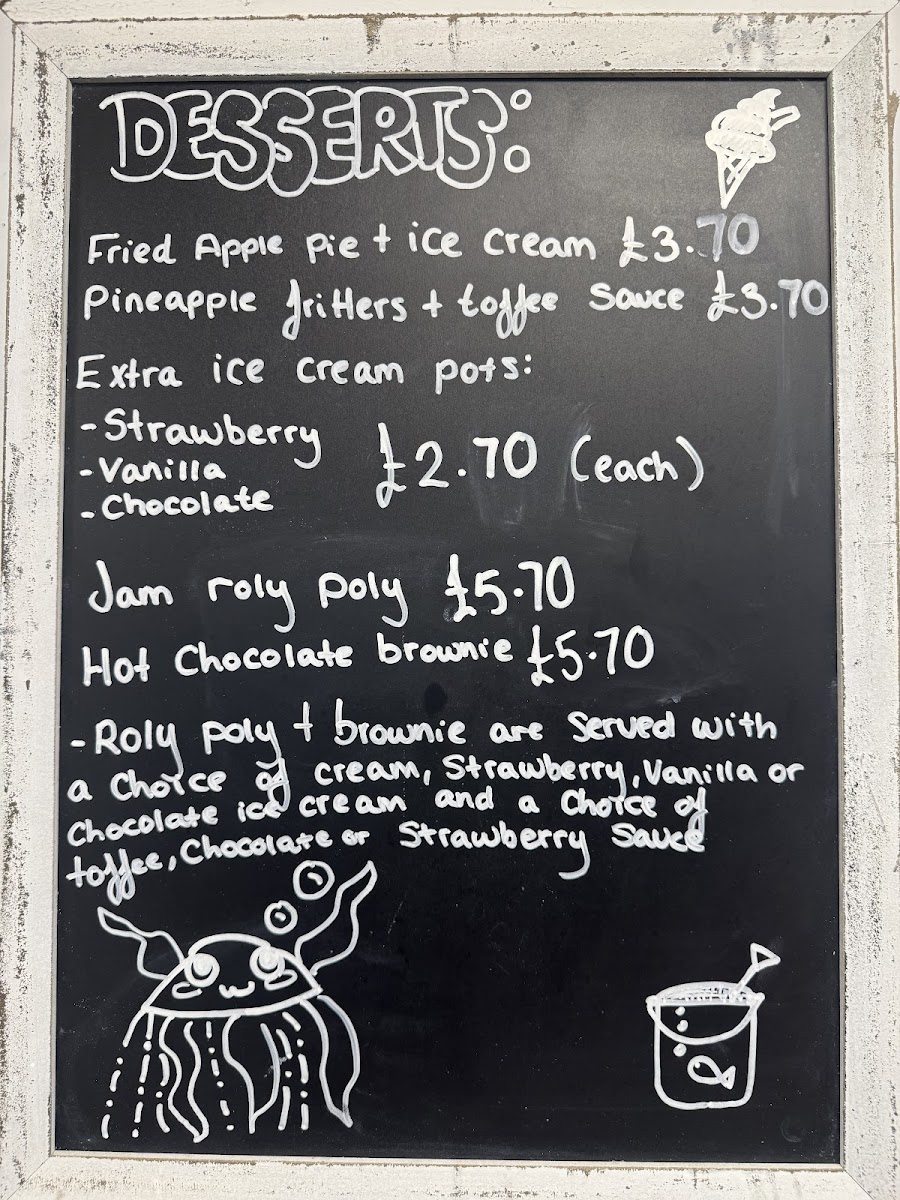 DESSERTS:
Fried Apple Pie + ice cream £3.70
Pineapple fritters + toffee sauce £3.70
Extra ice cream pots:
- Strawberry
- Vanilla
- Chocolate
£2.70 (each)
Jam roly poly £5.70
Hot Chocolate brownie £5.70
- Roly poly + brownie are served with
a choice of cream, Strawberry, Vanilla or
Chocolate ice cream and a choice of
toffee, Chocolate or Strawberry Sauce